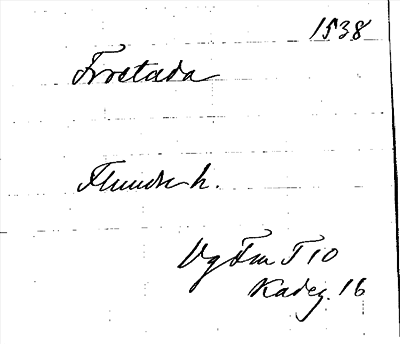 1538
Frostada
Flundre h.
Vg Fm T 10
Kadeg. 16